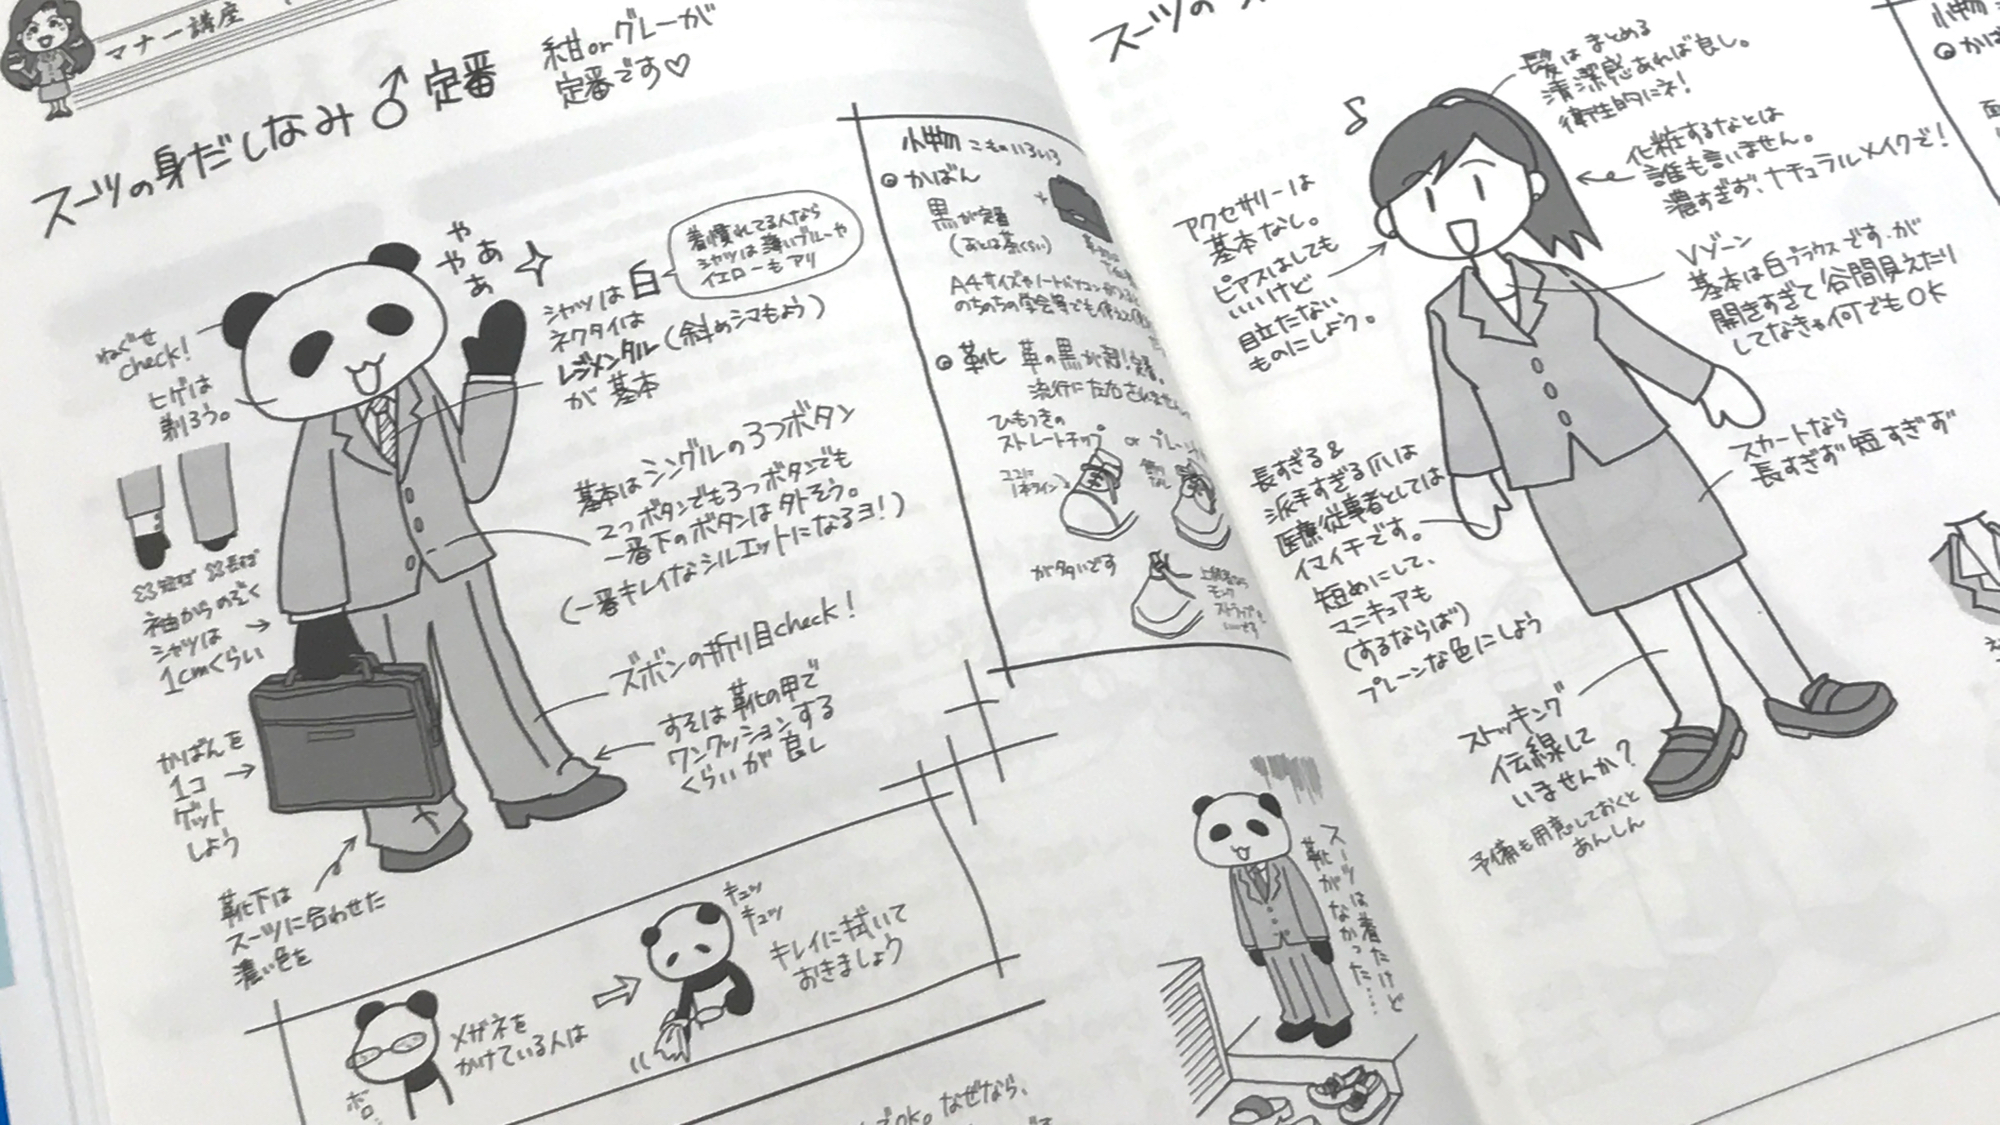 マナー講座
スーツの身だしなみ♂定番
紺orグレーが
定番です♡
ややあぁ
ねぐせ
check!
ヒゲは
剃ろう。
シャツは白
着慣れてる人なら
シャツは薄いブルーや
イエローもアリ
ネクタイは
レジメンタル(斜めシマもよう)
が基本
基本はシングルの3つボタン
2つボタンでも3つボタンでも
一番下のボタンは外そう。
(一番キレイなシルエットになるヨ!)
袖からのぞく
シャツは
1cmくらい
ズボンの折り目check!
すそは靴の甲で
ワンクッションする
くらいが良し
かばんを
1コ
ゲット
しよう
靴下は
スーツに合わせた
濃い色を
メガネを
かけている人は
ボロ
キュッ
キュッ
キレイに拭いて
おきましょう
OK。なぜなら、
小物 こものいろいろ
かばん
黒が定番
(あとは茶くらい)
A4サイズやノートパソコンが
のちのちの学会等でも使える
靴 革の黒が超!定番。
流行に左右されません
ひもつきの
ストレートチップ or プレーン
ココに
1本ライン
飾り
なし
がタイです
上級者なら
モンク
ストラップも
スーツは着たけど
靴がなかった……
スーツの
髪はまとめる
清潔感あれば良し。
衛生的にネ!
化粧するなとは
誰も言いません。
濃すぎず、ナチュラルメイクで!
アクセサリーは
基本なし。
ピアスはしても
いいけど
目立たない
ものにしよう。
Vゾーン
基本は白ブラウスです。が
開きすぎて谷間見えたり
してなきゃ何でもOK
長すぎる&
派手すぎる爪は
医療従事者としては
イマイチです。
短めにして、
マニキュアも
(するならば)
プレーンな色にしよう
スカートなら
長すぎず短すぎず
ストッキング
伝線して
いませんか?
予備も用意しておくと
あんしん
小物
かば